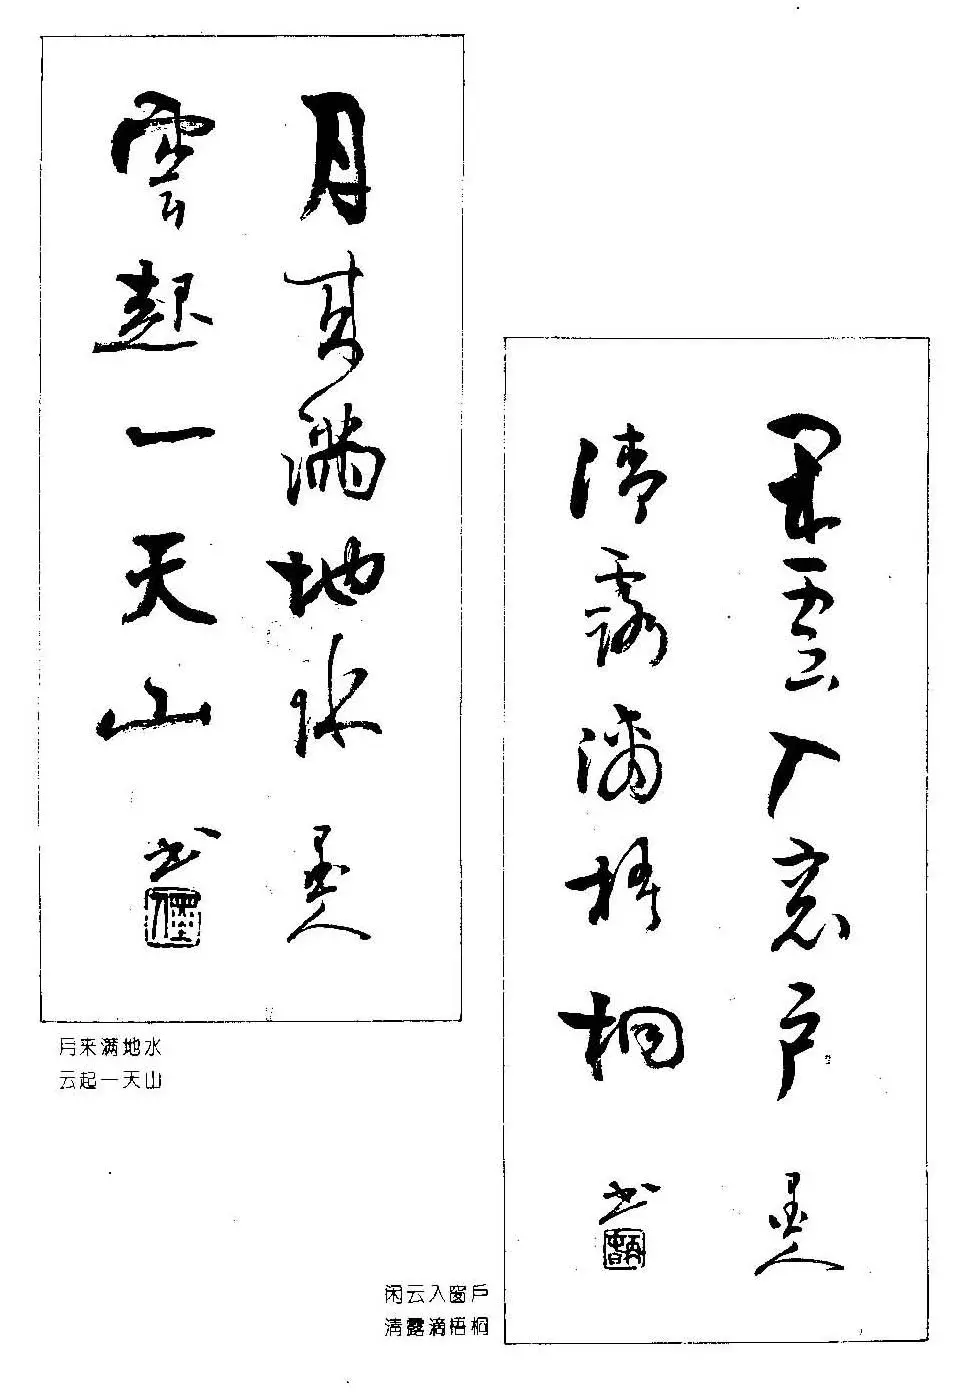 月来滿地水
墨人
雲起一天山
书
月来满地水
云起一天山
闲雲入窗户
墨人
清露滴梧桐
书
闲云入窗户
清露滴梧桐